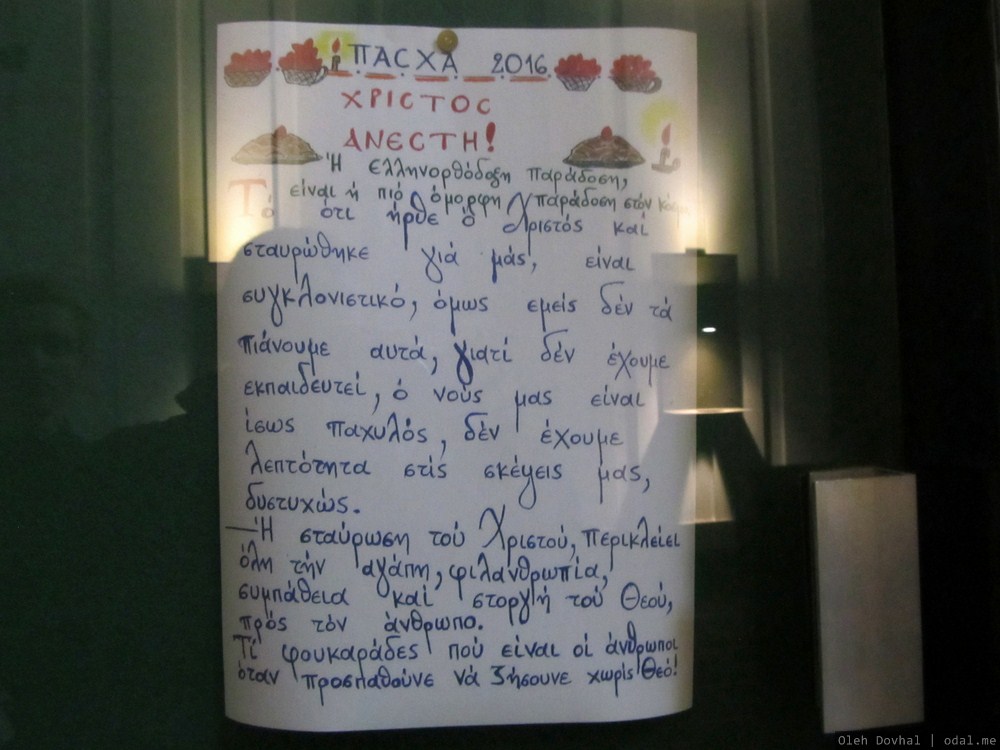 ΠΑΣΧΑ 2016
ΧΡΙСΤΟС
ΑΝΕСΤΗ!
Ἡ ἑλληνορθόδοξη παράδοση,
εἶναι ἡ πιό ὄμορφη παράδοση στόν
Τό ὅτι ἦρθε ὁ Χριστός καί
σταυρώθηκε γιά μάς, εἶναι
συγκλονιστικό, ὅμως εμείς δέν τά
πιάνουμε αυτά, γιατί δέν ἔχουμε
εκπαιδευτεί, ὁ νούς μας εἶναι
ἴσως παχυλός, δέν ἔχουμε
λεπτότητα στίς σκέψεις μας,
δυστυχώς.
—Ἡ σταύρωση τού Χριστού, περικλείει
ὅλη τήν αγάπη, φιλανθρωπία,
συμπάθεια καί στοργή τού Θεού,
πρός τόν ἄνθρωπο.
Τί φουκαράδες πού εἶναι οἱ ἄνθρωποι
ὅταν προσπαθούνε νά ζήσουνε χωρίς Θεό!
Oleh Dovhal | odal.me